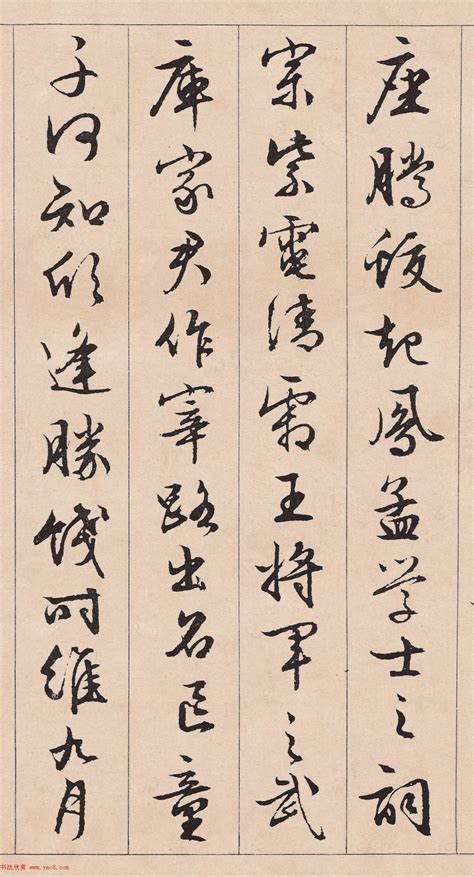 座腾蛟起鳳孟学士之詞
宗紫電清霜王將軍之武
庫家君作宰路出名區童
子何知欣逢勝餞时維九月
书法欣赏 www.yac8.com